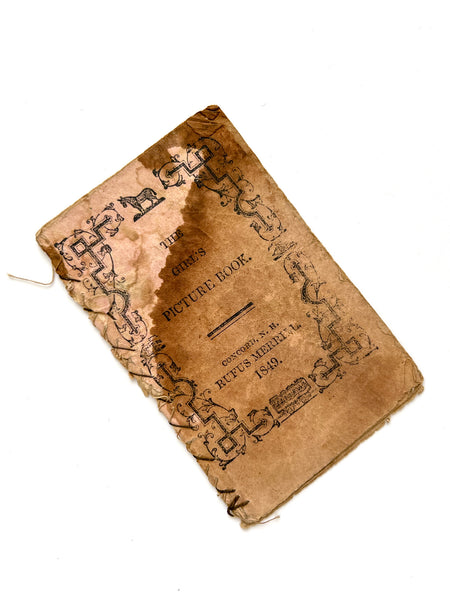 THE
GIRL'S
PICTURE BOOK.
CONCORD, N. H.
RUFUS MERRILL.
1849.